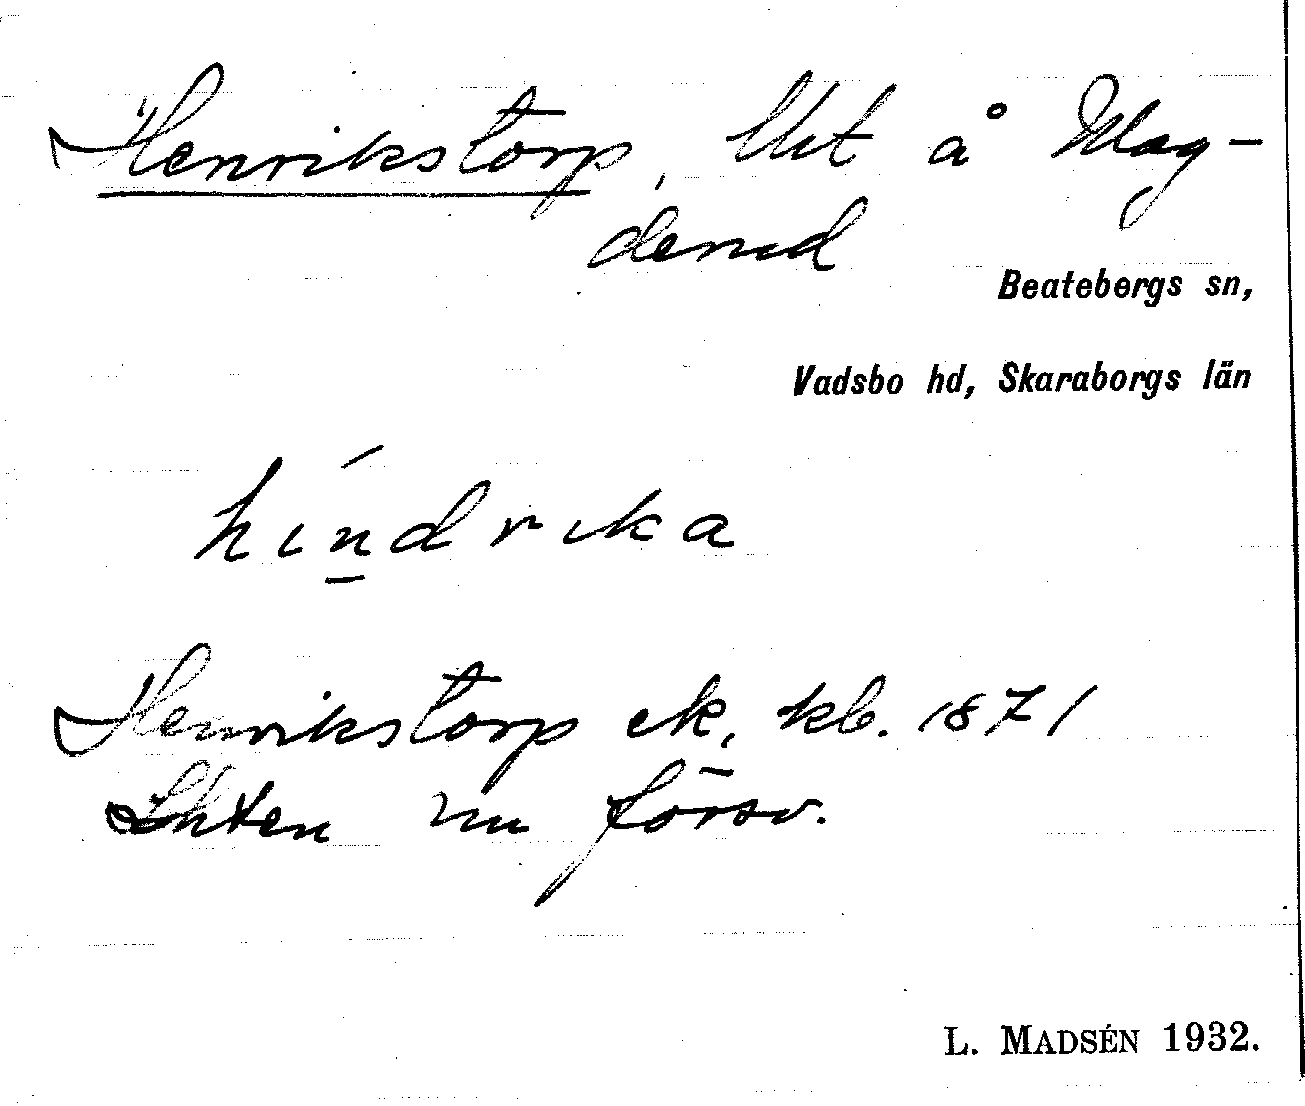 Henrikstorp, lht å Mag-
derud
Beatebergs sn,
Vadsbo hd, Skaraborgs län
híndrika
Henrikstorp ek. kb. 1871
Lhten nu försv.
L. MADSÉN 1932.